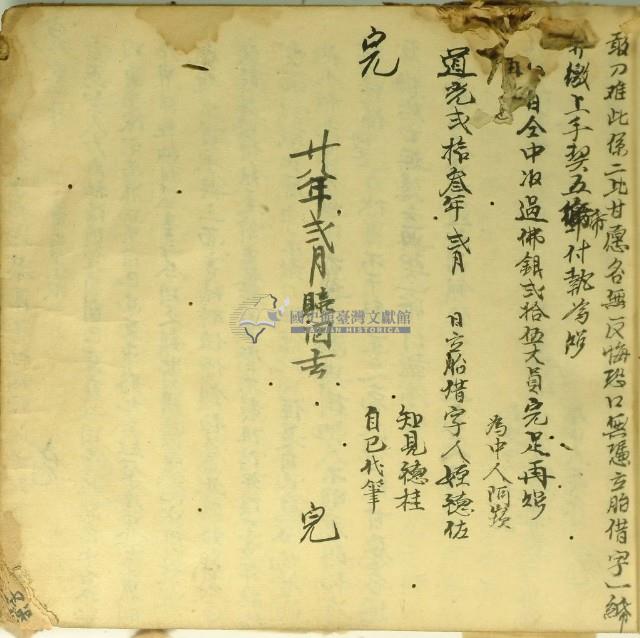 敢刁难此係二比甘愿各無反悔恐口無憑立胎借字一紙
并繳上手契五紙付執為炤
日仝中收過佛銀弍拾伍大員完足再炤
為中人阿
道光弍拾叁年弍月 日立胎借字人姪德佐
知見德桂
自己代筆
完
廿八年弍月贖回去
完
國史館臺灣文獻館
TAIWAN HISTORICA